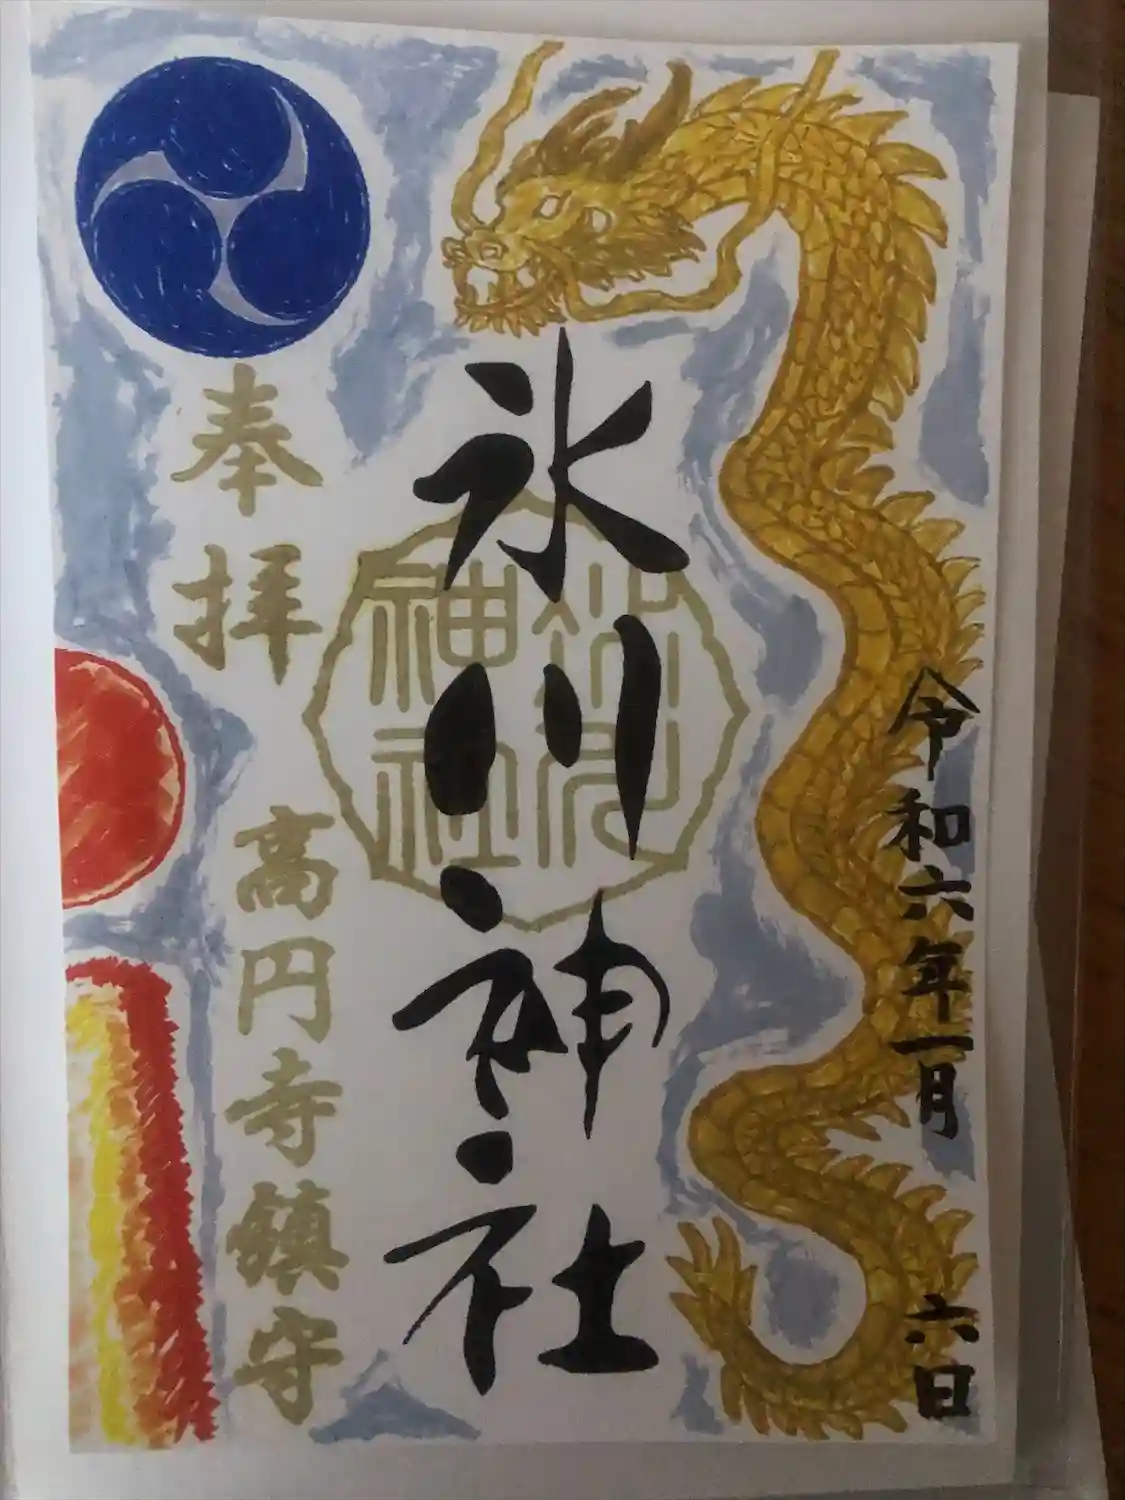 令和六年一月六日
氷川神社
氷川
神社
奉拝
高円寺鎮守